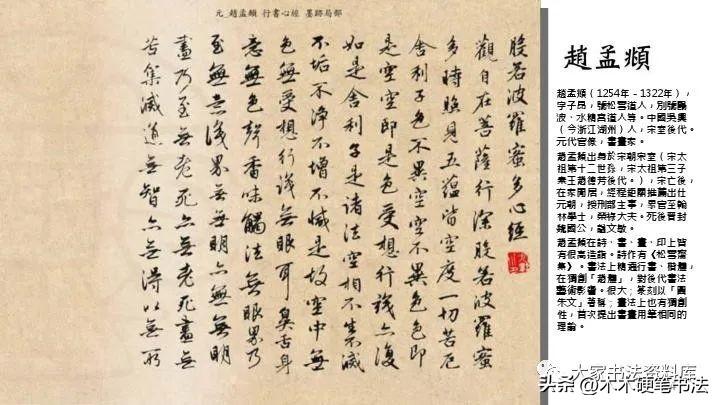 元 趙孟頫 行書心經 墨跡局部
般若波羅蜜多心經
觀自在菩薩行深般若波羅蜜
多時照見五蘊皆空度一切苦厄
舍利子色不異空空不異色色即
是空空即是色受想行識亦復
如是舍利子是諸法空相不生不滅
不垢不淨不增不減是故空中無
色無受想行識無眼耳鼻舌身
意無色聲香味觸法無眼界乃
至無意識界無無明亦無無明
盡乃至無老死亦無老死盡無
苦集滅道無智亦無得以無所
趙孟頫
趙孟頫（1254年－1322年），
字子昂，號松雪道人，別號鷗
波、水精宮道人等。中國吳興
（今浙江湖州）人，宋室後代。
元代官僚，書畫家。
趙孟頫出身於宋朝宗室（宋太
祖第十二世孫，宋太祖第三子
秦王趙德芳後代。），宋亡後，
在家閒居，經程鉅夫推薦出仕
元朝，授刑部主事，累官至翰
林學士，榮祿大夫。死後冒封
魏國公，諡文敏。
趙孟頫在詩、書、畫、印上皆
有很高造詣。詩作有《松雪齋
集》。書法上精通行書、楷體，
在獨創「趙體」，對後代書法
藝術影響。很大；篆刻以「圓
朱文」著稱；畫法上也有獨創
性，首次提出書畫用筆相同的
理論。
大家书法资料库
头条@木木硬笔书法